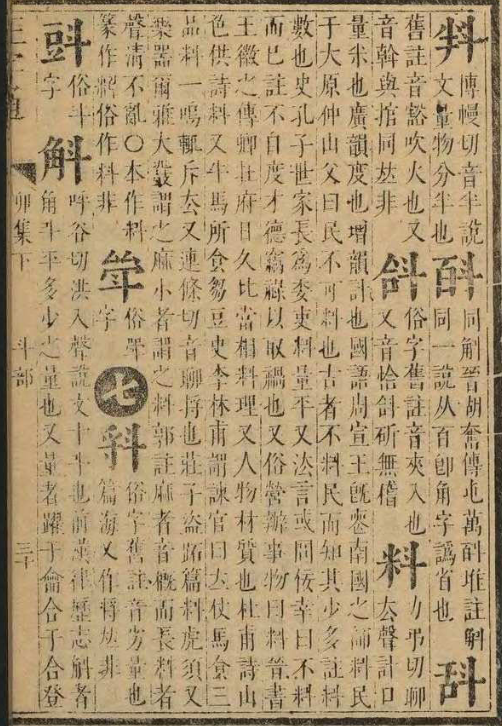 傳慢切音半說
文量物分半也
同斛晉胡奮傳屯萬斛堆註斛
同一說从百卽角字譌省也
舊註音豁吹火也又
音幹與捾同𠀤非
㪉
俗字舊註音夾入也
又音恰㪉斫無稽
料
力弔切聊
去聲計口
量米也廣韻度也增韻計也國語周宣王旣喪南國之師料民
于大原仲山父曰民不可料也古者不料民而知其少多註料
數也史孔子世家長爲委吏料量平又法言或問佞幸曰不料
而已註不自度才德竊祿以取禍也又俗營辦事物曰料晉書
王徽之傳卿在府日久比當相料理又人物材質也杜甫詩山
色供詩料又牛馬所食芻豆史李林甫謂諫官曰立仗馬食三
品料一鳴輒斥去又連條切音聊捋也莊子盜跖篇料虎須又
樂器爾雅大鼗謂之麻小者謂之料郭註麻者音概而長料者
聲清不亂〇本作料
篆作俗作料非
俗斝
字
七
俗字舊註音旁量也
篇海又作𠀤非
俗斗
字
斛
呼谷切洪入聲說文十斗也前漢律歷志斛者
角斗平多少之量也又量者躍于龠合于合登
正字通 卯集下 斗部 三十